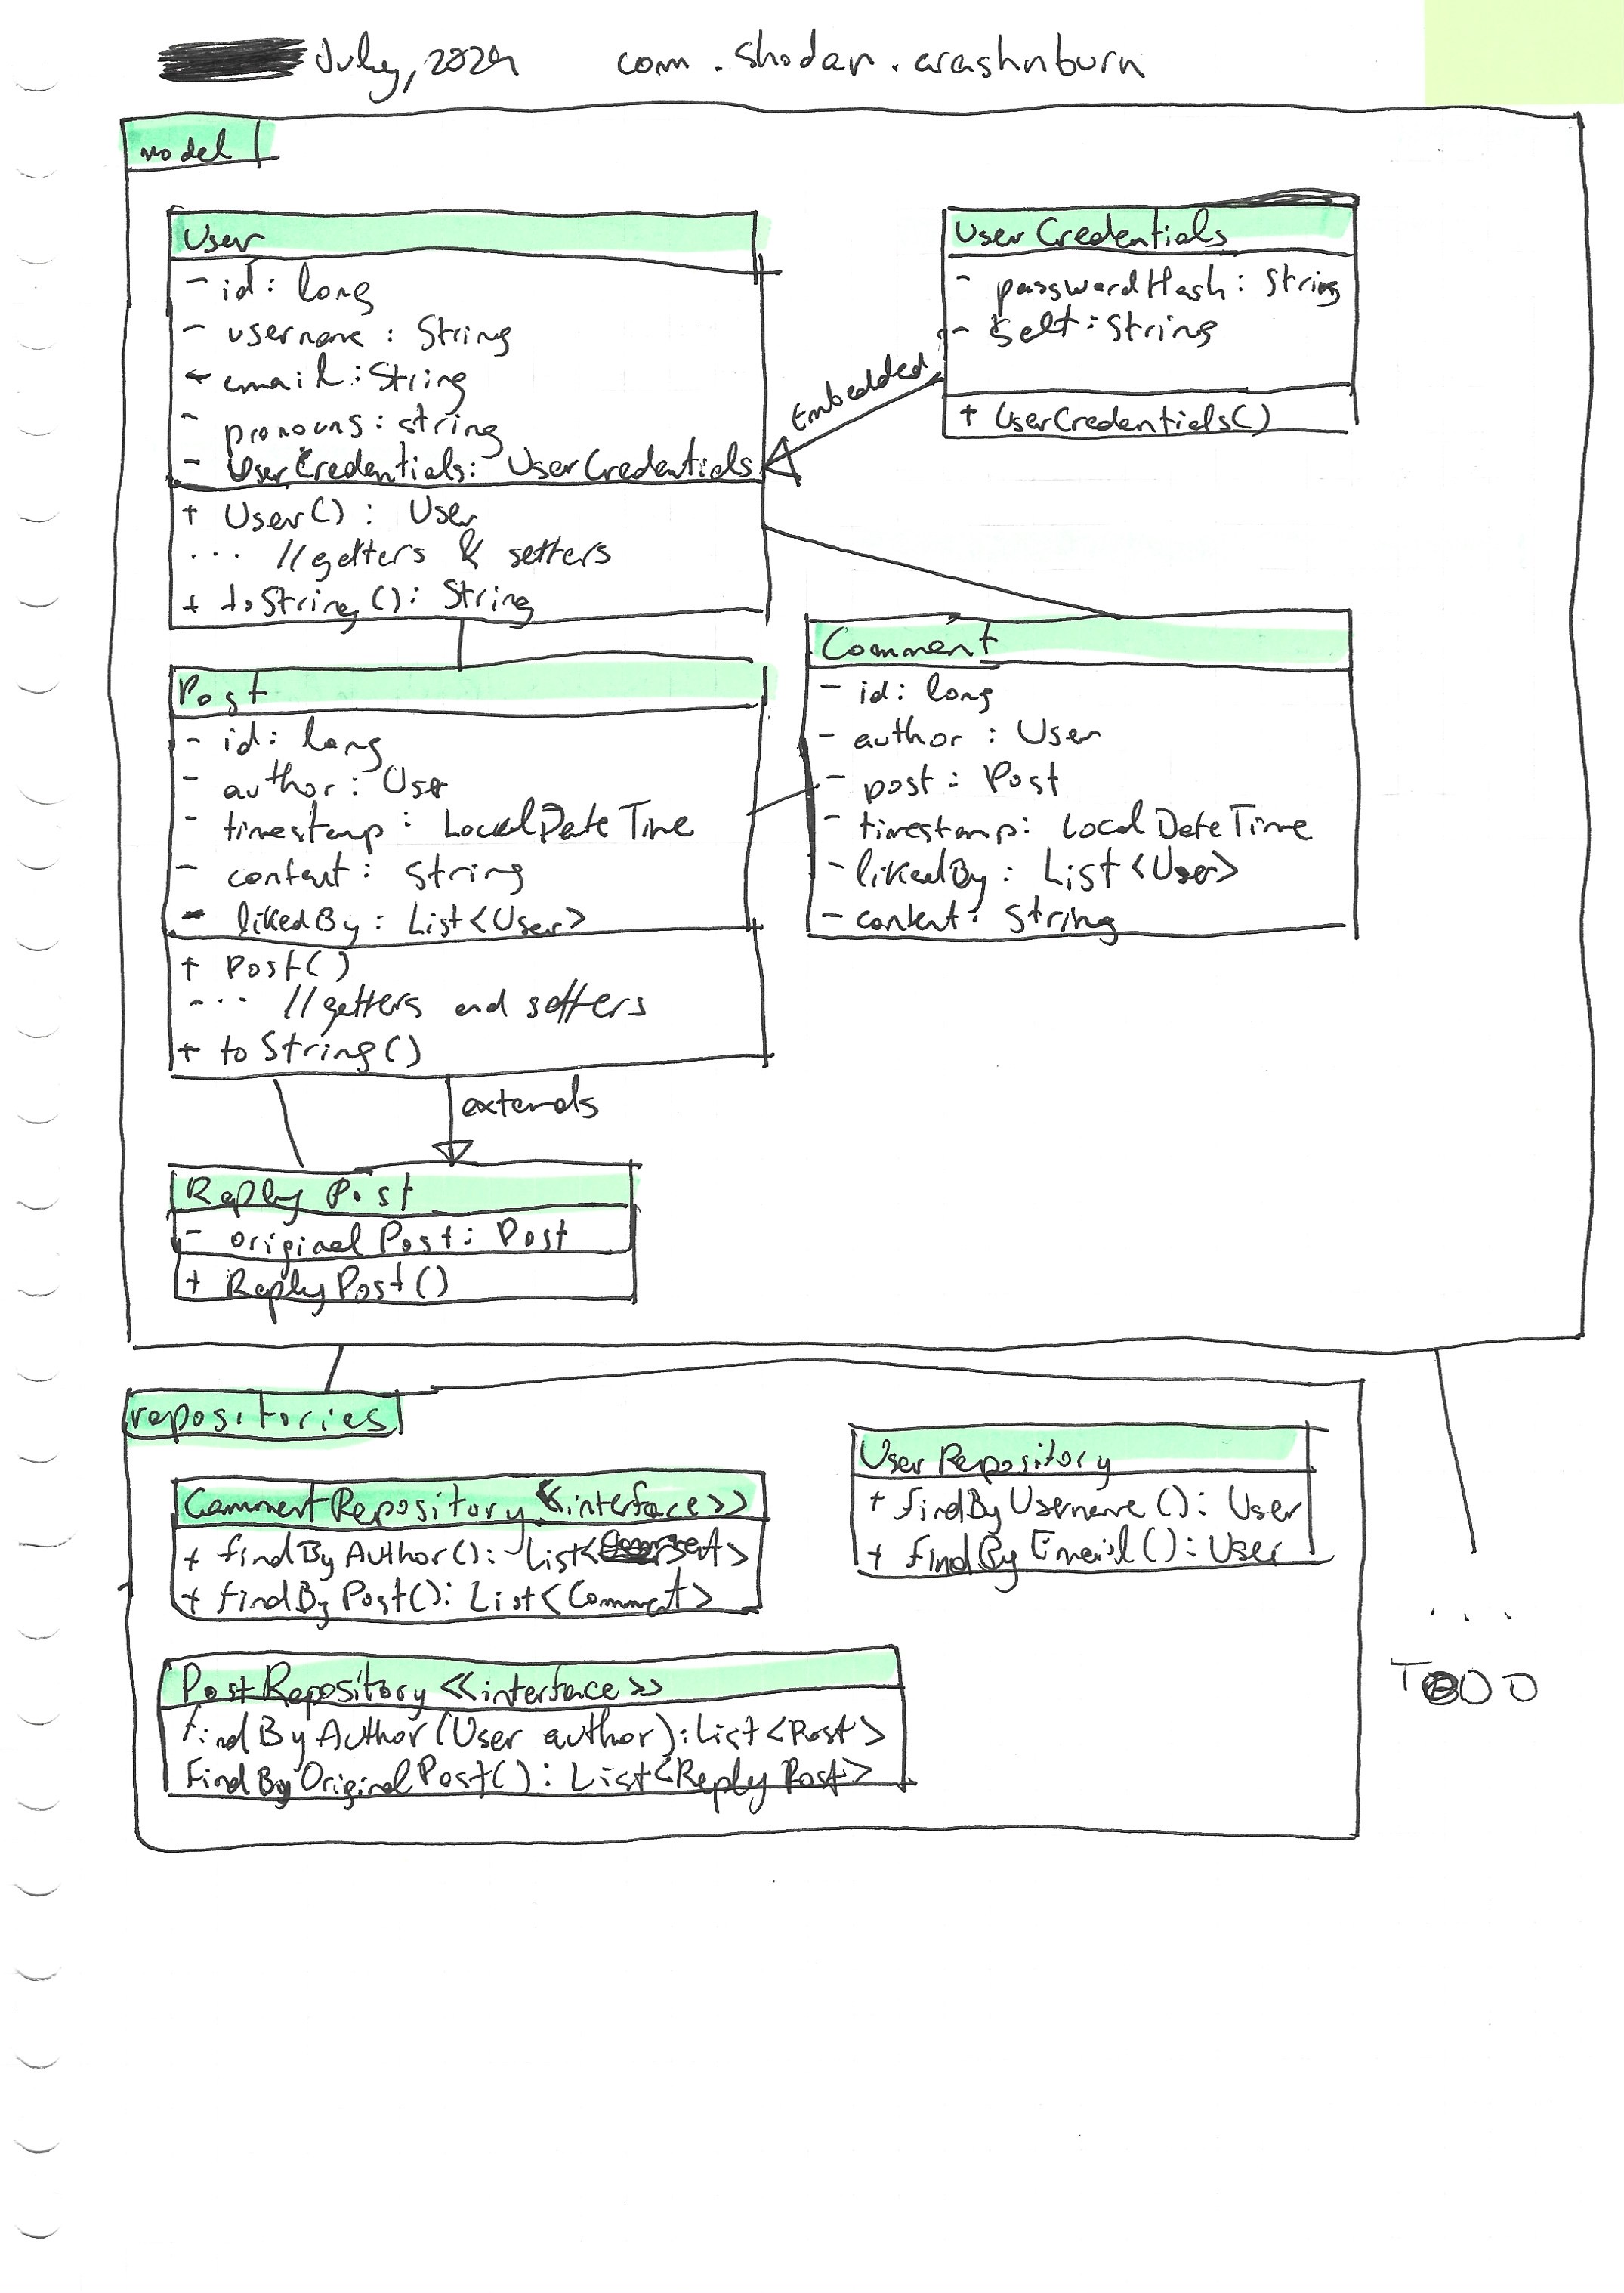 July, 2024 com.shodan.crashnburn
model
User
- id: long
- username: String
- email: String
- pronouns: string
- UserCredentials: UserCredentials
+ User(): User
... //getters & setters
+ toString(): String
UserCredentials
- passwordHash: String
- Salt: String
+ UserCredentials()
Embedded
Post
- id: long
- author: User
- timestamp: LocalDateTime
- content: String
- likedBy: List<User>
+ Post()
... //getters and setters
+ toString()
Comment
- id: long
- author: User
- post: Post
- timestamp: LocalDateTime
- likedBy: List<User>
- content: String
extends
Reply Post
- original Post: Post
+ ReplyPost()
repositories
CommentRepository <<interface>>
+ findByAuthor(): List<Comment>
+ findByPost(): List<Comment>
UserRepository
+ findByUsername(): User
+ findByEmail(): User
PostRepository <<interface>>
findByAuthor(User author): List<Post>
FindByOriginalPost(): List<ReplyPost>
...
TODO